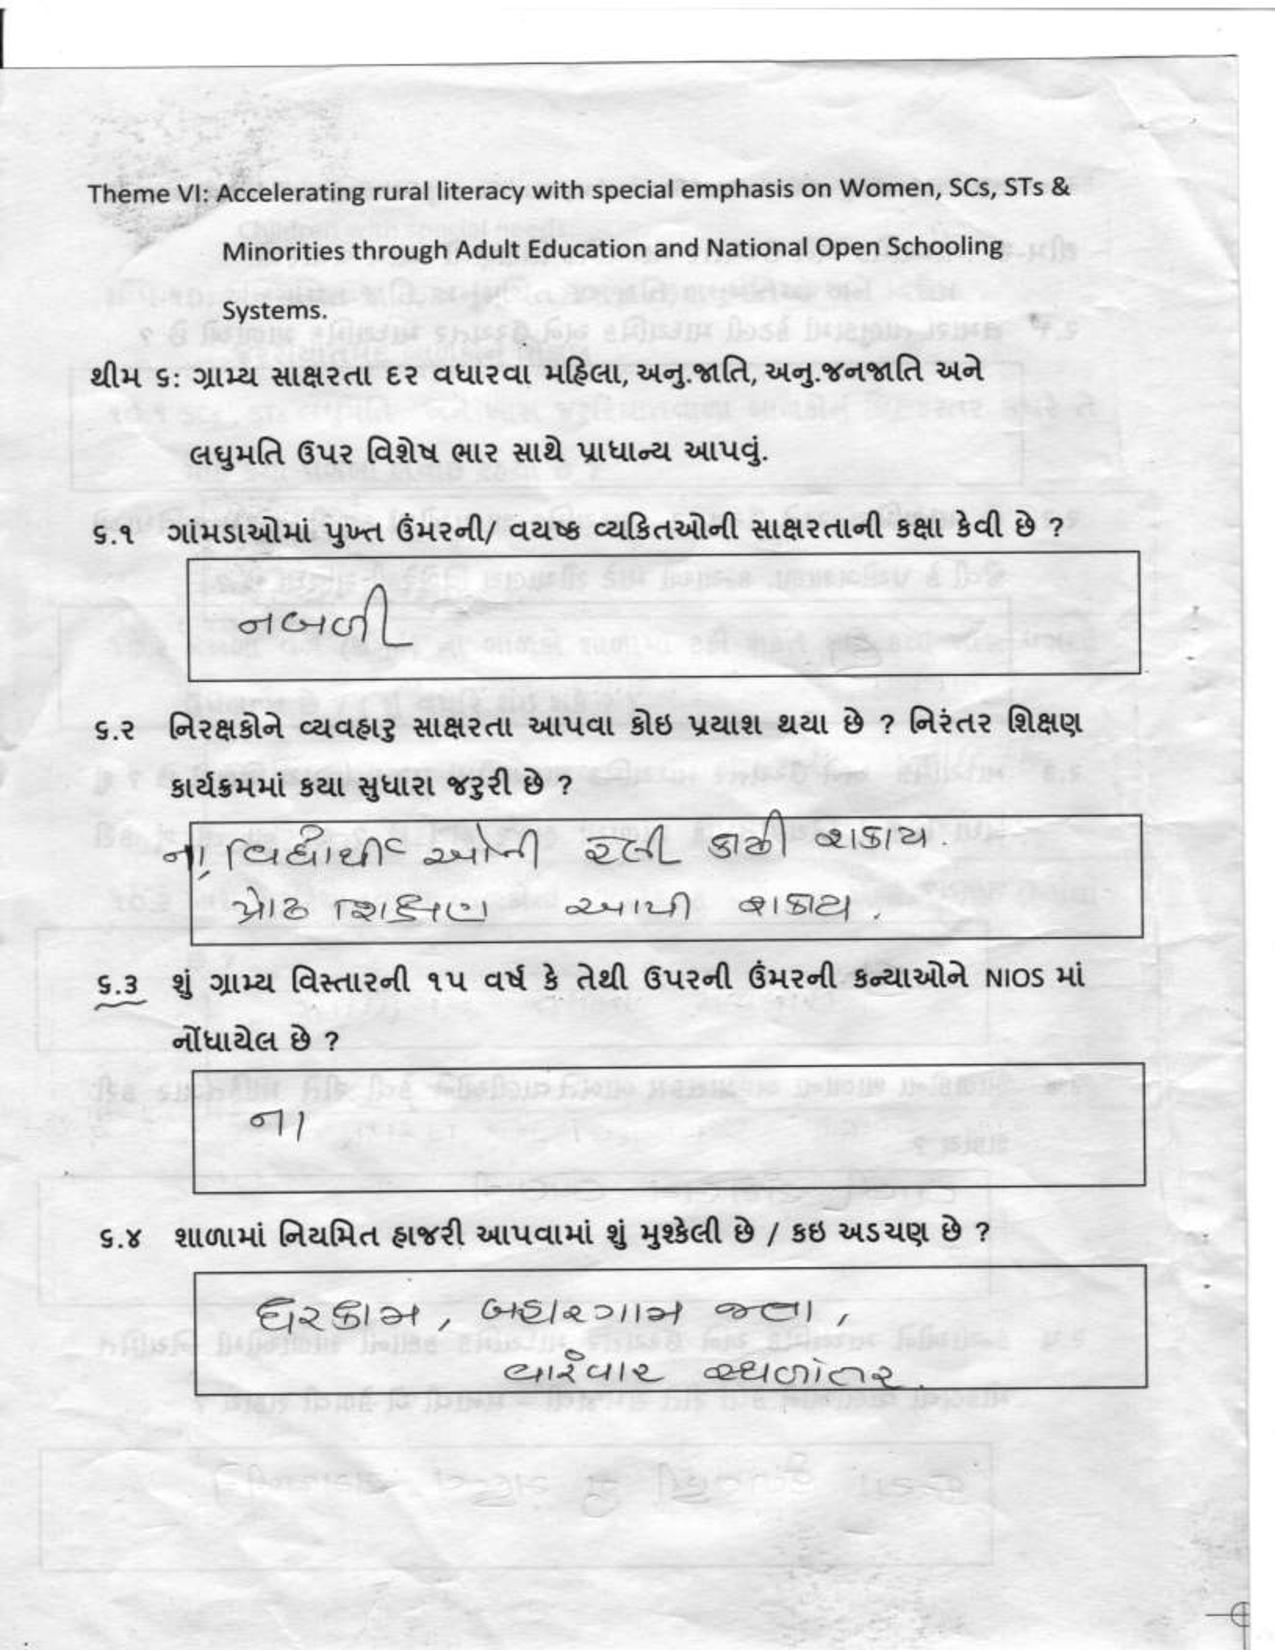 Theme VI: Accelerating rural literacy with special emphasis on Women, SCs, STs &
Minorities through Adult Education and National Open Schooling
Systems.
થીમ ૬: ગ્રામ્ય સાક્ષરતા દર વધારવા મહિલા, અનુ.જાતિ, અનુ.જનજાતિ અને
લઘુમતિ ઉપર વિશેષ ભાર સાથે પ્રાધાન્ય આપવું.
૬.૧ ગાંમડાઓમાં પુખ્ત ઉંમરની/ વયષ્ક વ્યકિતઓની સાક્ષરતાની કક્ષા કેવી છે ?
નબળી
૬.૨ નિરક્ષકોને વ્યવહારુ સાક્ષરતા આપવા કોઇ પ્રયાશ થયા છે ? નિરંતર શિક્ષણ
કાર્યક્રમમાં કયા સુધારા જરુરી છે ?
ના, વિદ્યાર્થીઓની રેલી કાઢી શકાય.
પ્રોઢ શિક્ષણ આપી શકાય.
૬.૩ શું ગ્રામ્ય વિસ્તારની ૧૫ વર્ષ કે તેથી ઉપરની ઉંમરની કન્યાઓને NIOS માં
નોંધાયેલ છે ?
ના
૬.૪ શાળામાં નિયમિત હાજરી આપવામાં શું મુશ્કેલી છે / કઇ અડચણ છે ?
ઘરકામ, બહારગામ જવા,
વારંવાર સ્થળાંતર.